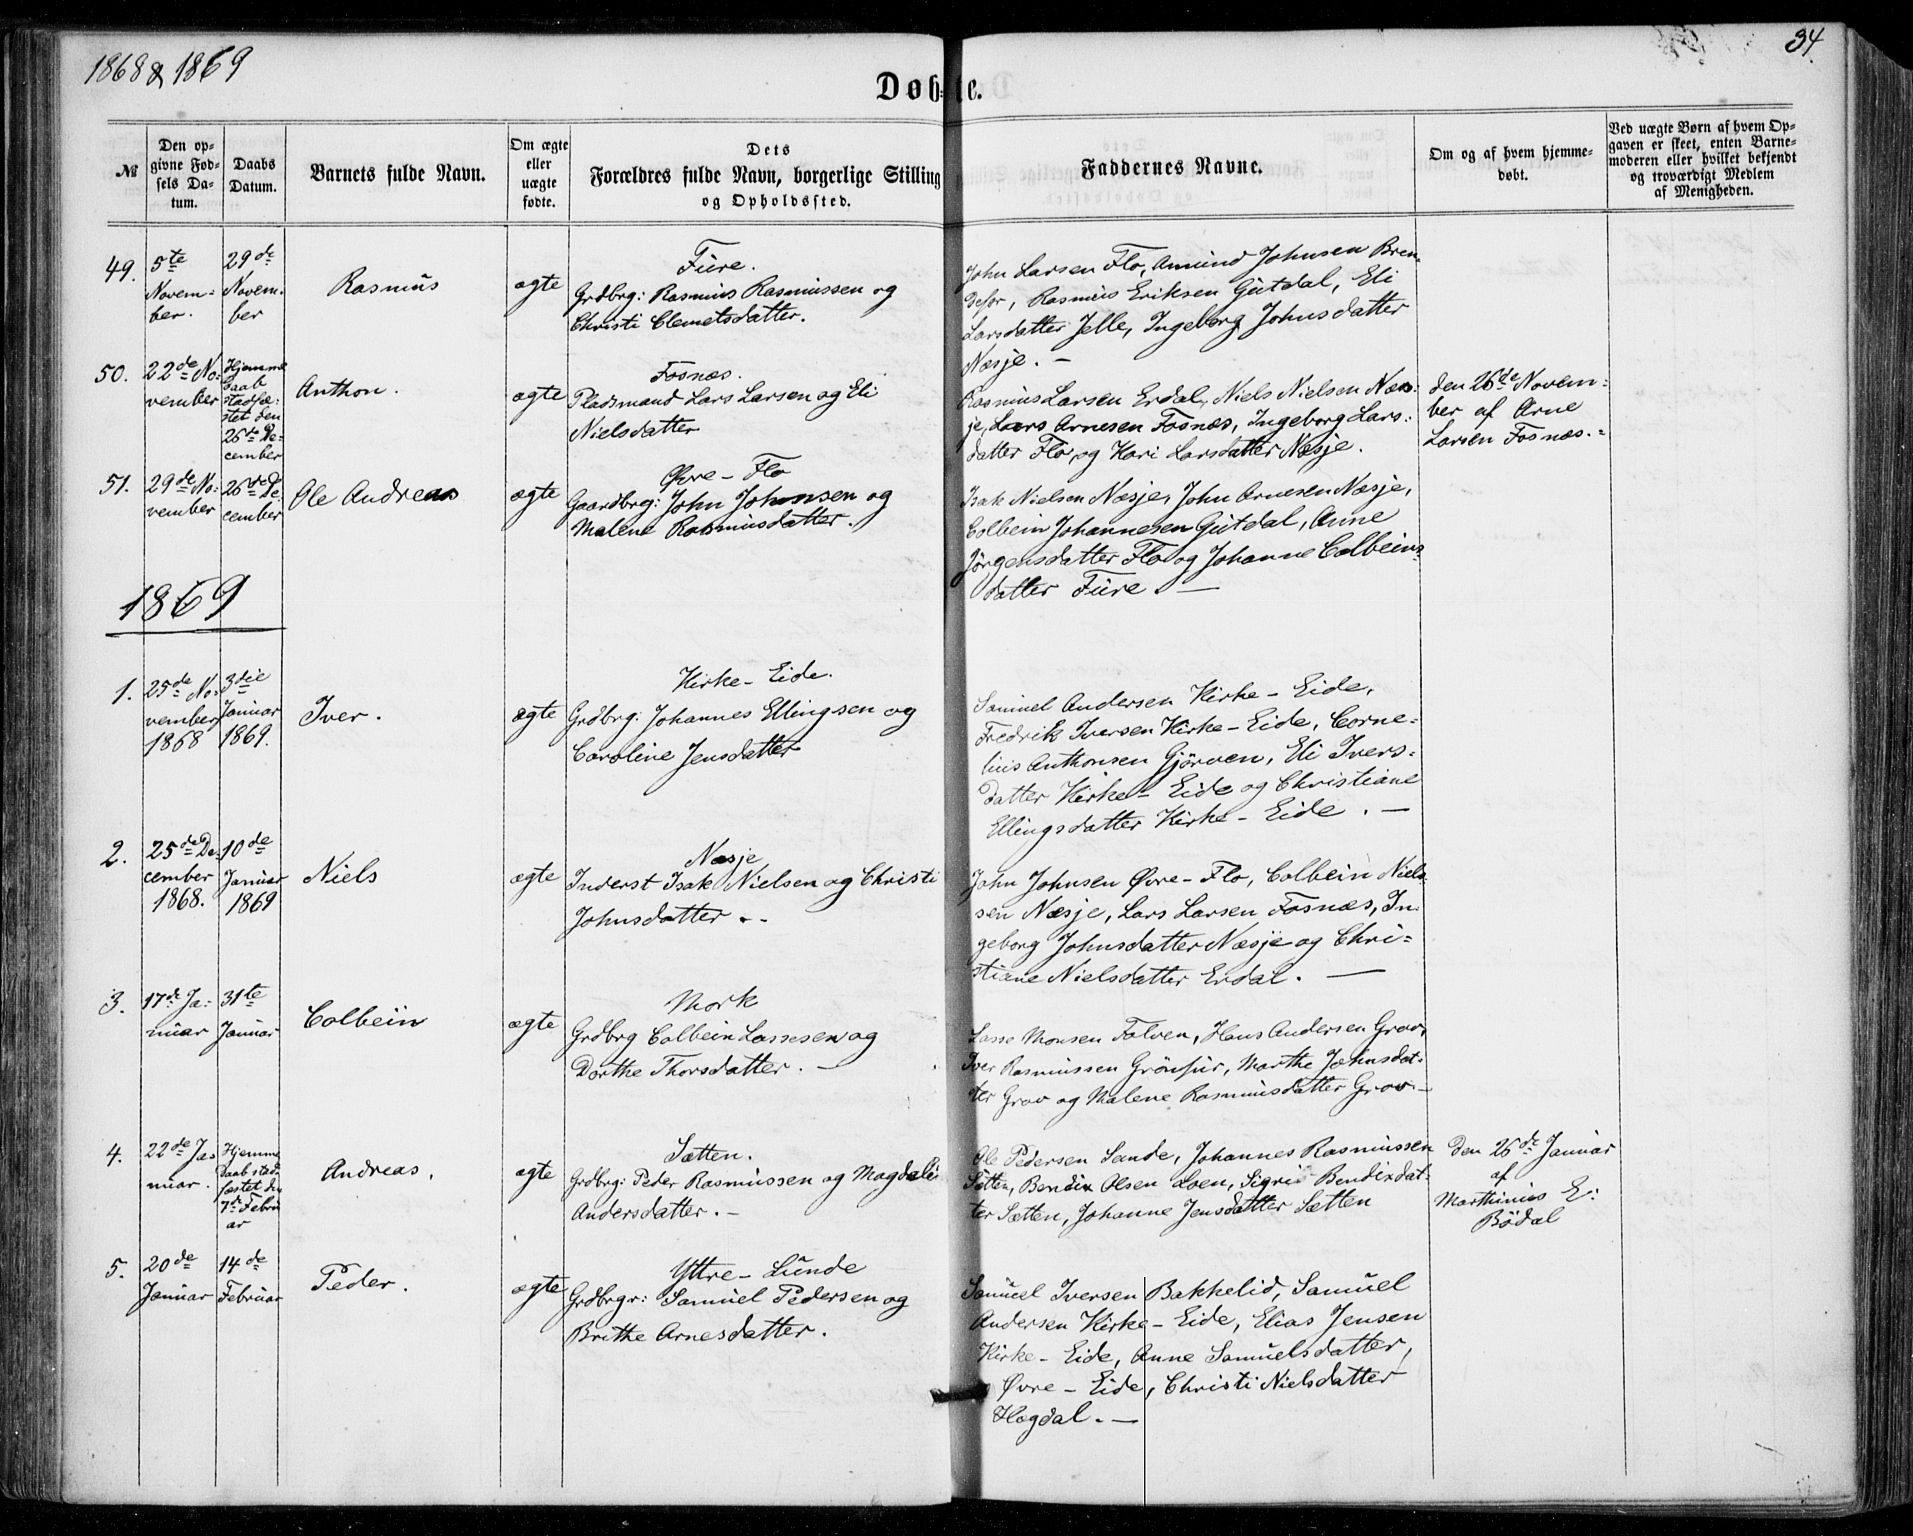 1868 & 1869
34.
Døbte.
№
Den op-
givne Fød-
sels Da-
tum.
Daabs
Datum.
Barnets fulde Navn.
Om ægte
eller
uægte
fødte.
Dets
Forældres fulde Navn, borgerlige Stilling
og Opholdssted.
Faddernes Navne.
Om og af hvem hjemme-
døbt.
Ved uægte Børn af hvem Op-
gaven er skeet, enten Barne-
moderen eller hvilket bekjendt
og troværdigt Medlem
af Menigheden.
49.
5te
Novem-
ber.
29de
Novem-
ber
Rasmus
ægte
Fure.
Grdbrg: Rasmus Rasmussen og
Christi Clemetsdatter.
John Larsen Flo, Amund Johnsen Bren-
defor, Rasmus Eriksen Gutdal, Eli
Larsdatter Jelle, Ingeborg Johnsdatter
Næsje. —
50.
22de No-
vember
Hjemme
daab
stadfæ-
stet den
26de De-
cember
Anthon.
ægte
Fosnæs.
Pladsmand Lars Larsen og Eli
Nielsdatter
Rasmus Larsen Erdal, Niels Nielsen Næs-
je, Lars Arnesen Fosnæs, Ingeborg Lars-
datter Flo, og Kari Larsdatter Næsje.
den 26de Novem-
ber af Arne
Larsen Fosnæs.
51.
29de No-
vember
26de De-
cember
Ole Andreas
ægte
Øvre - Flo
Gaardbrg: John Johnsen og
Malene Rasmusdatter.
Isak Nielsen Næsje, John Arnesen Næsje,
Colbein Johannesen Gutdal, Anne
Jørgensdatter Flo og Johanne Colbeins-
datter Fure. —
1869
1.
25de No-
vember
1868
3die
Januar
1869.
Iver.
ægte
Kirke - Eide.
Grdbrg: Johannes Ellingsen og
Caroline Jensdatter
Samuel Andersen Kirke - Eide,
Fredrik Iversen Kirke - Eide, Corne-
lius Anthonsen Gjørven, Eli Ivers-
datter Kirke - Eide og Christiane
Ellingsdatter Kirke - Eide. —
2.
25de De-
cember
1868.
10de
Januar
1869
Niels
ægte
Næsje
Inderst Isak Nielsen og Christi
Johnsdatter. -
John Johnsen Øvre - Flo, Colbein Niel-
sen Næsje, Lars Larsen Fosnæs, In-
geborg Johnsdatter Næsje og Chri-
stiane Nielsdatter Erdal. —
3.
17de Ja-
nuar
31te
Januar
Colbein
ægte
Mork
Grdbrg Colbein Lassesen og
Dorthe Thorsdatter. —
Lasse Monsen Folven, Hans Andersen Grov,
Iver Rasmussen Grønfur, Marthe Johnsdat-
ter Grov og Malene Rasmusdatter Grov. —
4.
22de Ja-
nuar.
Hjemme
daab stad-
fæstet den
7de Febru
ar
Andreas.
ægte
Sætten.
Grdbrg: Peder Rasmussen og Magdali
Andersdatter. —
Ole Pedersen Sande, Johannes Rasmussen
Sætten, Bendix Olsen Loen, Sigrid Bendixdat-
ter Sætten, Johanne Jensdatter Sætten
Den 26de Januar
af
Marthinus E:
Bødal
5.
20de
Januar
14de
Februar
Peder.
ægte
Yttre - Lunde
Grdbrgr: Samuel Pedersen og
Brithe Arnesdatter.
Samuel Iversen Bakkelid, Samuel
Andersen Kirke - Eide, Elias Jensen
Kirke - Eide, Anne Samuelsdatter,
Øvre - Eide, Christi Nielsdatter
Hogdal. —